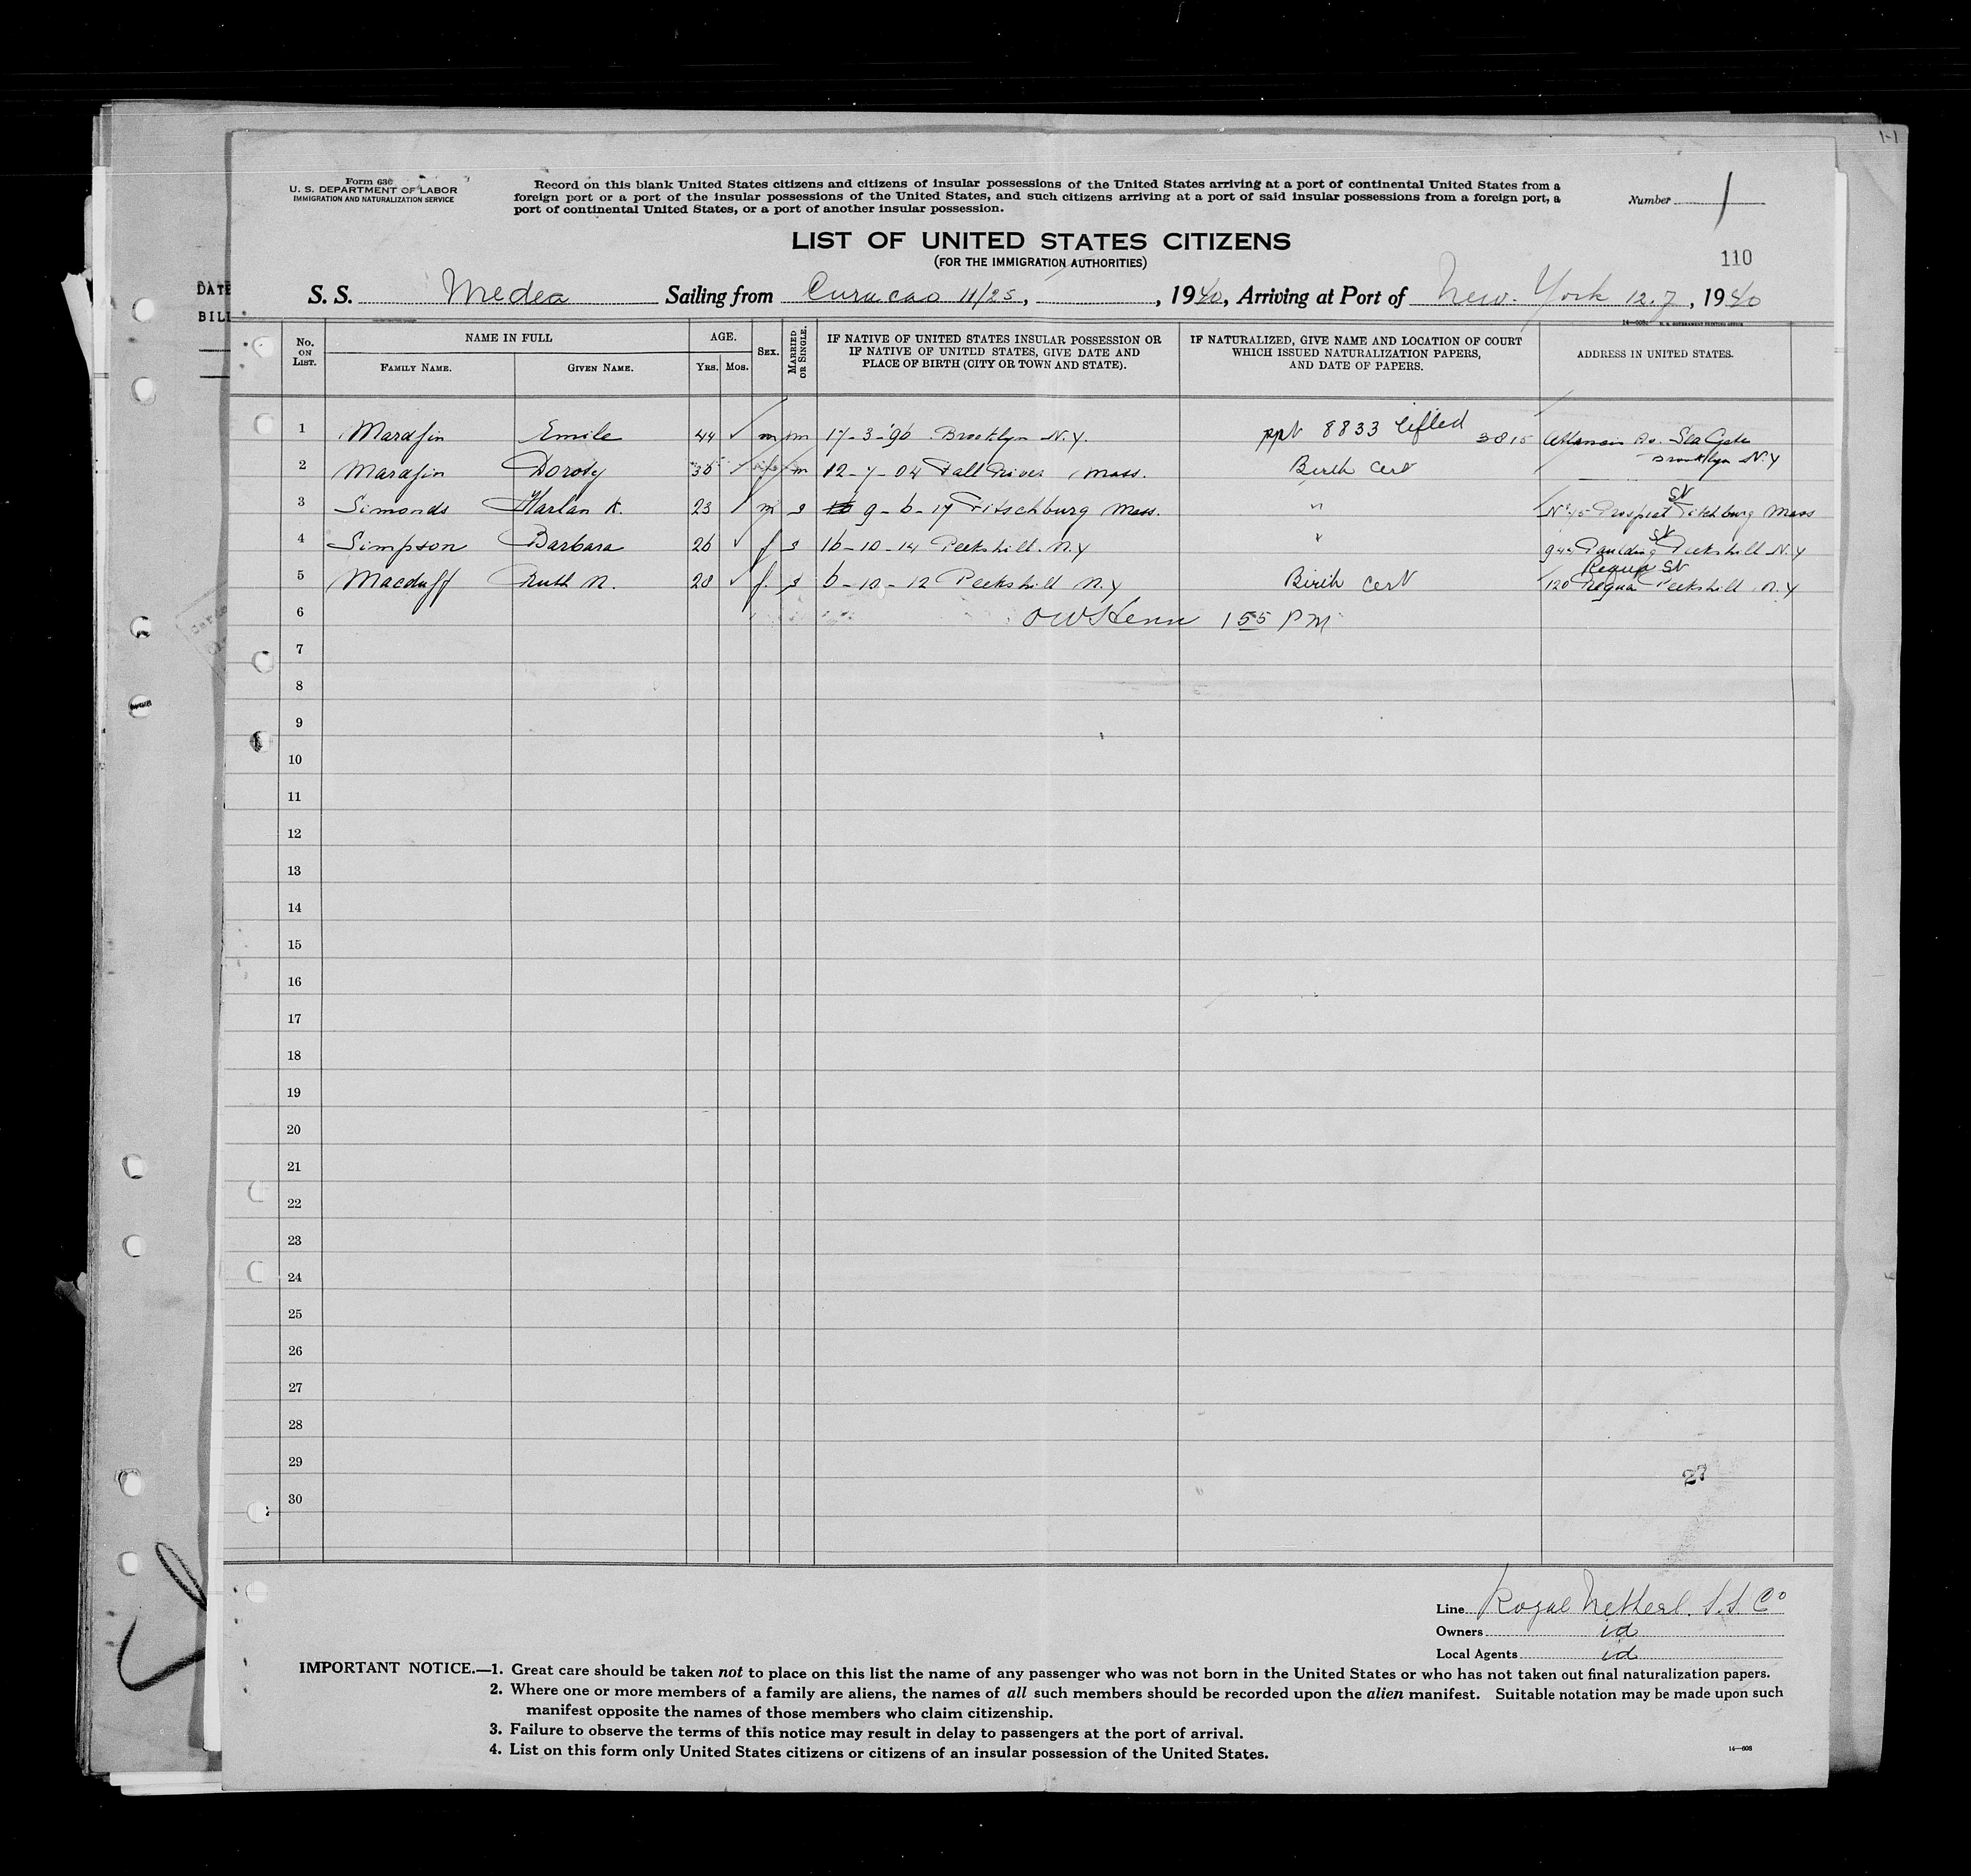 1-1
Form 630
U. S. DEPARTMENT OF LABOR
IMMIGRATION AND NATURALIZATION SERVICE
Record on this blank United States citizens and citizens of insular possessions of the United States arriving at a port of continental United States from a
foreign port or a port of the insular possessions of the United States, and such citizens arriving at a port of said insular possessions from a foreign port, a
port of continental United States, or a port of another insular possession.
Number 1
LIST OF UNITED STATES CITIZENS
(FOR THE IMMIGRATION AUTHORITIES)
110
DATE
BILL
S. S. Medea Sailing from Curacao 11/25, , 1940, Arriving at Port of New-York 12.7, 1940
No. ON LIST. NAME IN FULL FAMILY NAME. GIVEN NAME. AGE. YRS. MOS. SEX. MARRIED OR SINGLE. IF NATIVE OF UNITED STATES INSULAR POSSESSION OR IF NATIVE OF UNITED STATES, GIVE DATE AND PLACE OF BIRTH (CITY OR TOWN AND STATE). IF NATURALIZED, GIVE NAME AND LOCATION OF COURT WHICH ISSUED NATURALIZATION PAPERS, AND DATE OF PAPERS. ADDRESS IN UNITED STATES.
1 Marafin Emile 44 ✓ m m 17-3-'96 Brooklyn N.Y. ppt 8833 lifted 3815 Av. Sea Gate
Brooklyn N.Y
2 Marafin Dorosy 36 ✓ f m 12-7-04 Fall River, Mass. Birth Cert
3 Simonds Harlan K. 23 ✓ m s 9-6-17 Fitschburg Mass. " No 45 Prospect St Fitchburg Mass
4 Simpson Barbara 26 ✓ f s 16-10-14 Peekshill N.Y " 944 Paulding St Peekshill N.Y
5 Macduff Ruth N. 28 ✓ f. s 6-10-12 Peekshill N.Y Birth Cert Requa St
120 Requa Peekshill N.Y
6 1 55 PM
7
8
9
10
11
12
13
14
15
16
17
18
19
20
21
22
23
24
25
26
27
28
29
27
30
Line Royal Netherl. S.S. Co
Owners id
Local Agents id
IMPORTANT NOTICE.—1. Great care should be taken not to place on this list the name of any passenger who was not born in the United States or who has not taken out final naturalization papers.
2. Where one or more members of a family are aliens, the names of all such members should be recorded upon the alien manifest. Suitable notation may be made upon such
manifest opposite the names of those members who claim citizenship.
3. Failure to observe the terms of this notice may result in delay to passengers at the port of arrival.
4. List on this form only United States citizens or citizens of an insular possession of the United States.
14—608